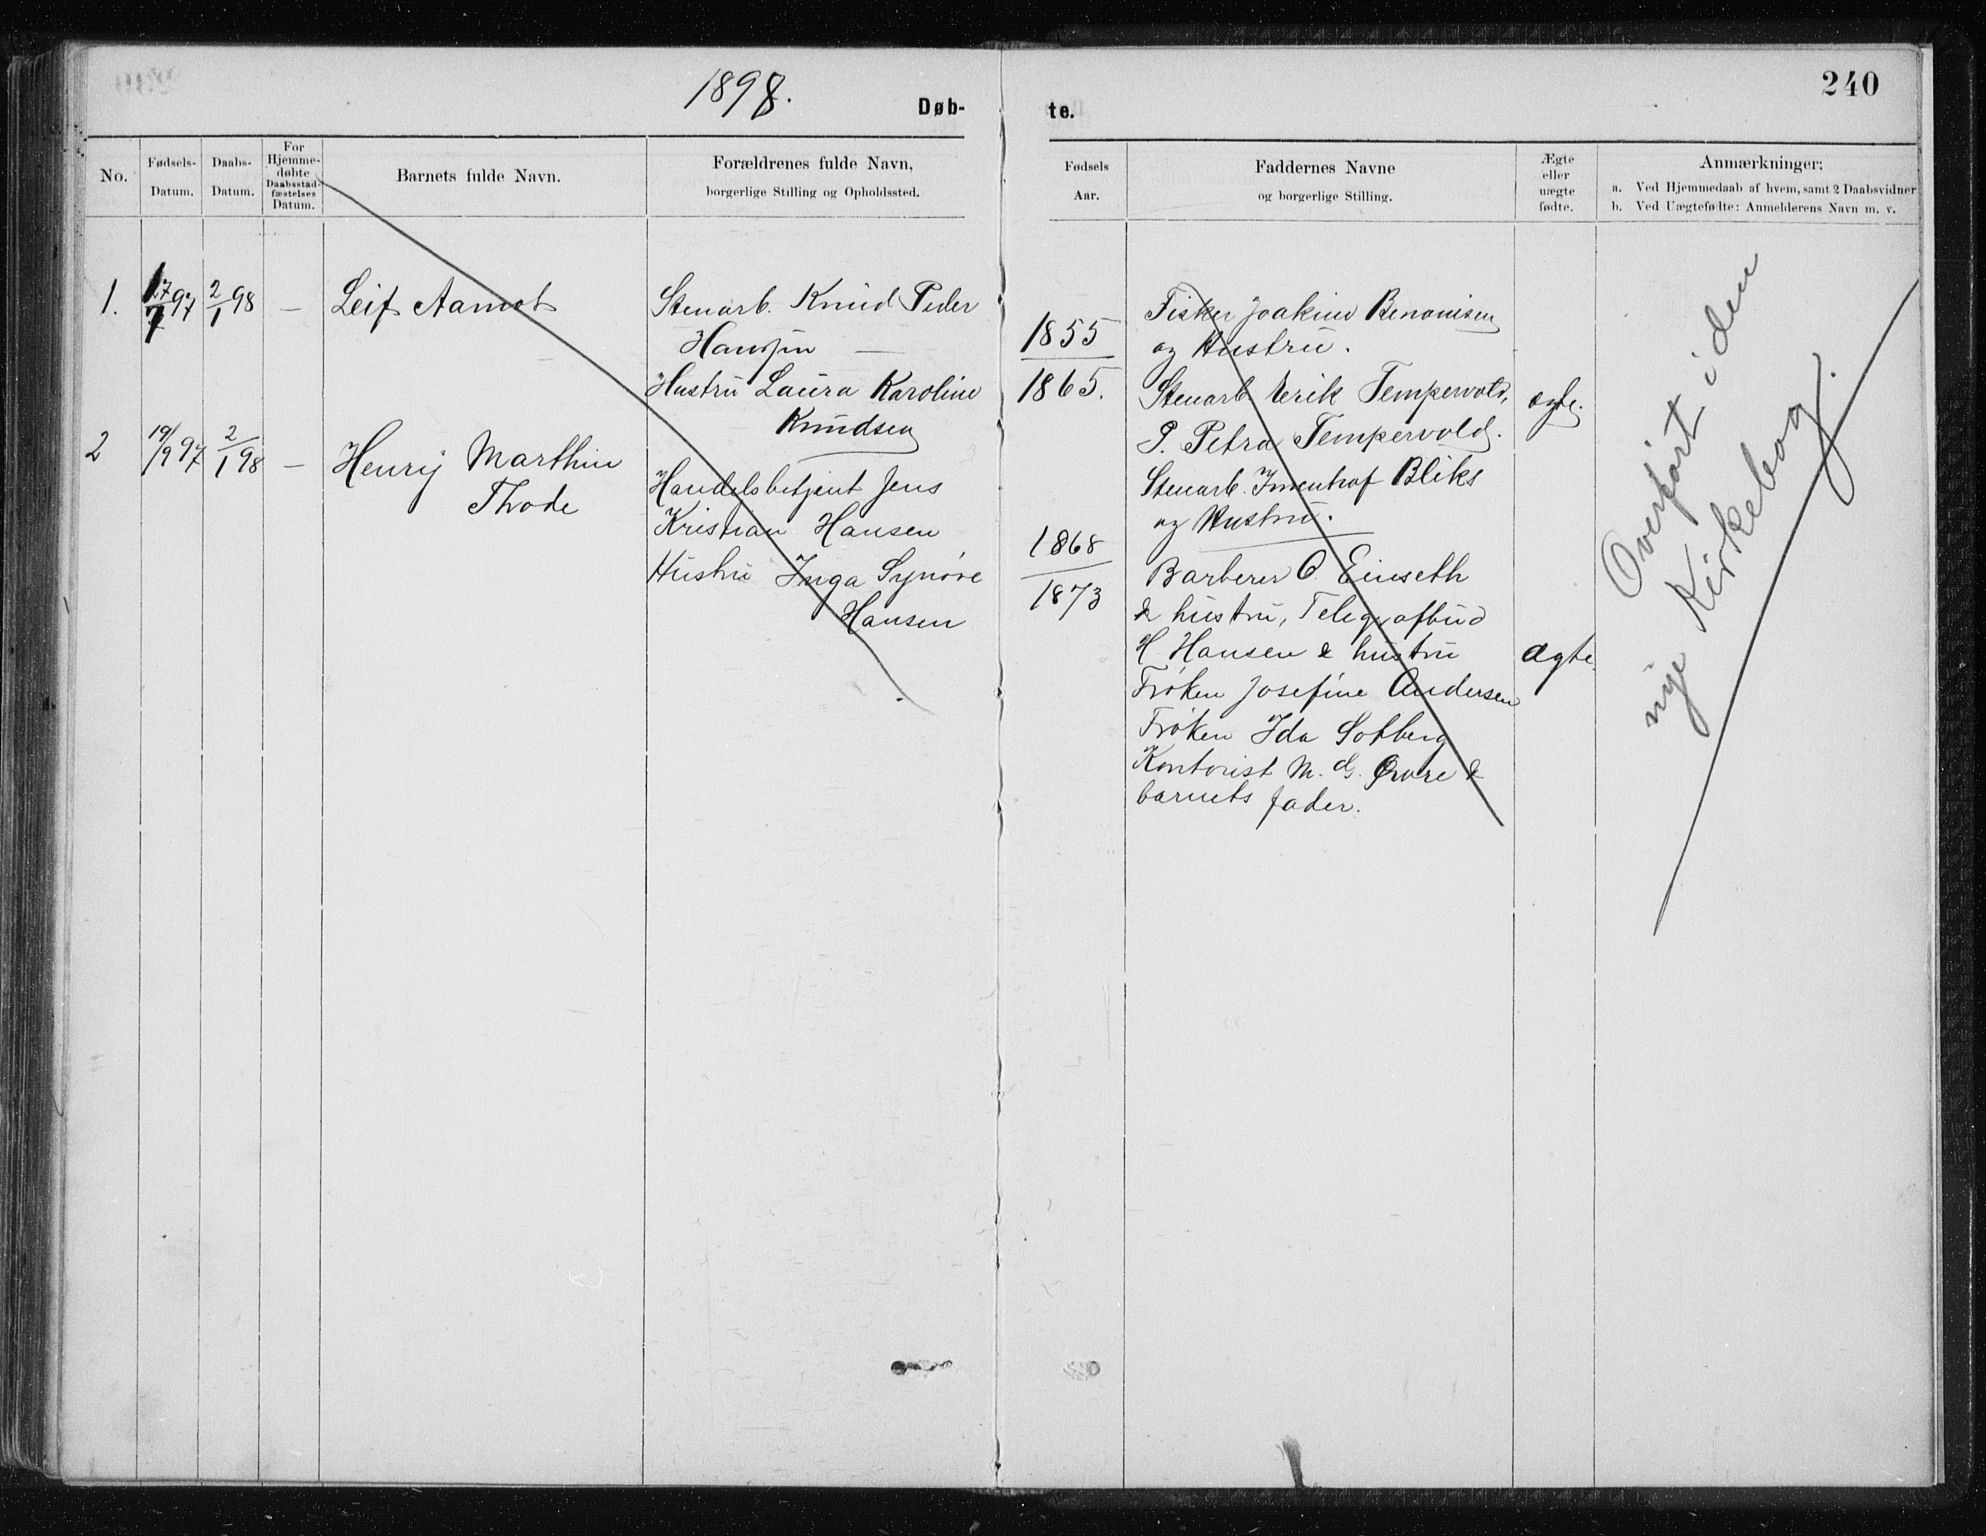 1898.
240
Døb-
te.
No.
Fødsels-
Datum.
Daabs-
Datum.
For
Hjemme-
døbte
Daabsstad-
fæstelses
Datum.
Barnets fulde Navn.
Forældrenes fulde Navn,
borgerlige Stilling og Opholdssted.
Fødsels
Aar.
Faddernes Navne
og borgerlige Stilling.
Ægte
eller
uægte
fødte.
Anmærkninger:
a. Ved Hjemmedaab af hvem, samt 2 Daabsvidner
b. Ved Uægtefødte: Anmelderens Navn m. v.
1. 17/7 97 2/1 98 — Leif Aamot
Stenarb. Knud Peder
Hansen —
Hustru Laura Karoline
Knudsen
1855
1865.
Fisker Joakim Benonisen
og Hustru.
Stenarb. Erik Tempervold,
P. Petra Tempervold.
Stenarb. Bliks
og Hustru.
ægte.
2 19/9 97 2/1 98 — Henry Marthin
Thode
Handelsbetjent Jens
Kristian Hansen
Hustru Inga Synøve
Hansen
1868
1873
Barberer O. Einseth
& hustru, Telegrafbud
H. Hansen & hustru
Frøken Josefine Andersen
Frøken Ida Solberg
Kontorist M. G. Øvre &
barnets fader.
ægte.
Overført i den
nye Kirkebog.